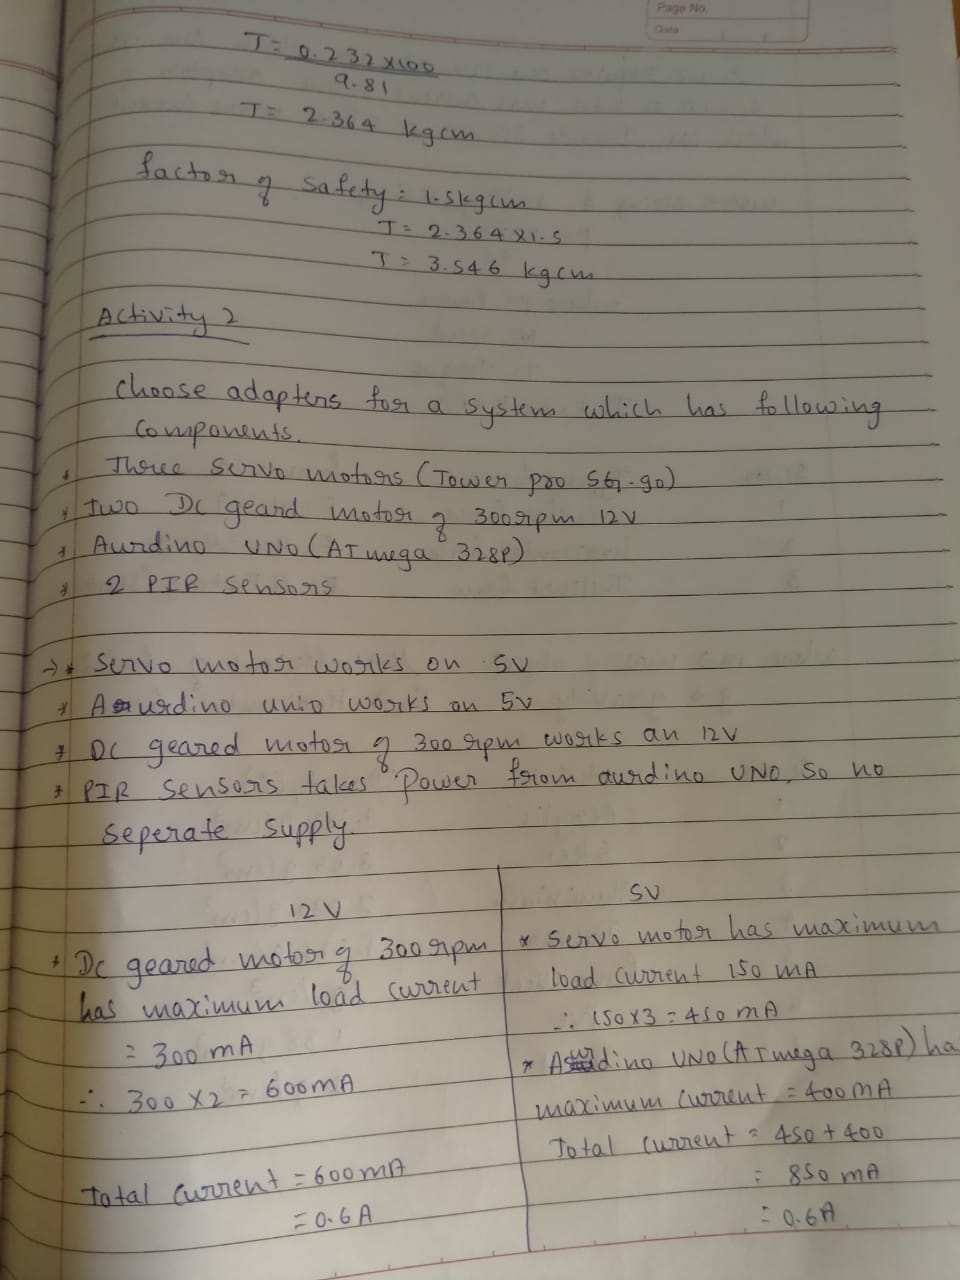 Page No.
Date
T = 0.232 x 100
9.81
T = 2.364 kgcm
factor of safety = 1.5kgcm
T = 2.364 x 1.5
T = 3.546 kgcm
Activity 2
Choose adapters for a system which has following
Components.
* Three servo motors (Tower pro SG-90)
* Two Dc geard motor of 300rpm 12V
* Aurdino UNO (ATmega 328P)
* 2 PIR sensors
→ * Servo motor works on 5V
* Aurdino unio works on 5v
* DC geared motor of 300 rpm works an 12V
* PIR sensors takes Power from aurdino UNO, so no
seperate supply.
12 V
* Dc geared motor of 300rpm
has maximum load current
= 300 mA
∴ 300 x 2 = 600mA
Total current = 600mA
= 0.6A
5V
* Servo motor has maximum
load current 150 mA
∴ 150x3 = 450 mA
* Aurdino UNO (ATmega 328P) ha
maximum current = 400mA
Total current = 450 + 400
= 850 mA
= 0.6A